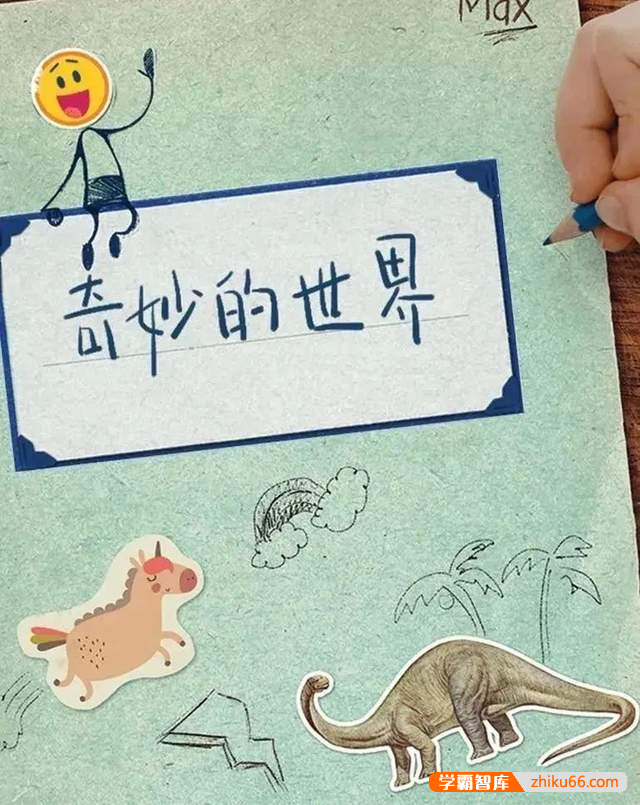 Max
奇妙的世界
学霸智库
zhiku66.com